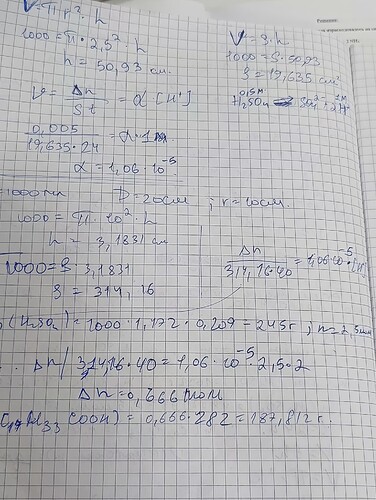 V = π r² · h
1000 = π · 2,5² · h
h = 50,93 см.
V = S · h
1000 = S · 50,93
S = 19,635 см²
0,5M 1M
H₂SO₄ → SO₄²⁻ + 2H⁺
V = Δn / S t = α [H⁺]
0,005 / 19,635 · 24 = α · 1M
α = 1,06 · 10⁻⁵
=1000 мл D = 20см ; r = 10см.
1000 = π · 10² · h
h = 3,1831 см
Δn / 314,16 · 40 = 1,06 · 10⁻⁵ · [H⁺]
1000 = S · 3,1831
S = 314,16
(H₂SO₄) = 1000 · 1,172 · 0,209 = 245 г ; n = 2,5 моль
Δn / 314,16 · 40 = 1,06 · 10⁻⁵ · 2,5 · 2
Δn = 0,666 моль
C₁₇H₃₃COOH) = 0,666 · 282 = 187,812 г.
Решение: